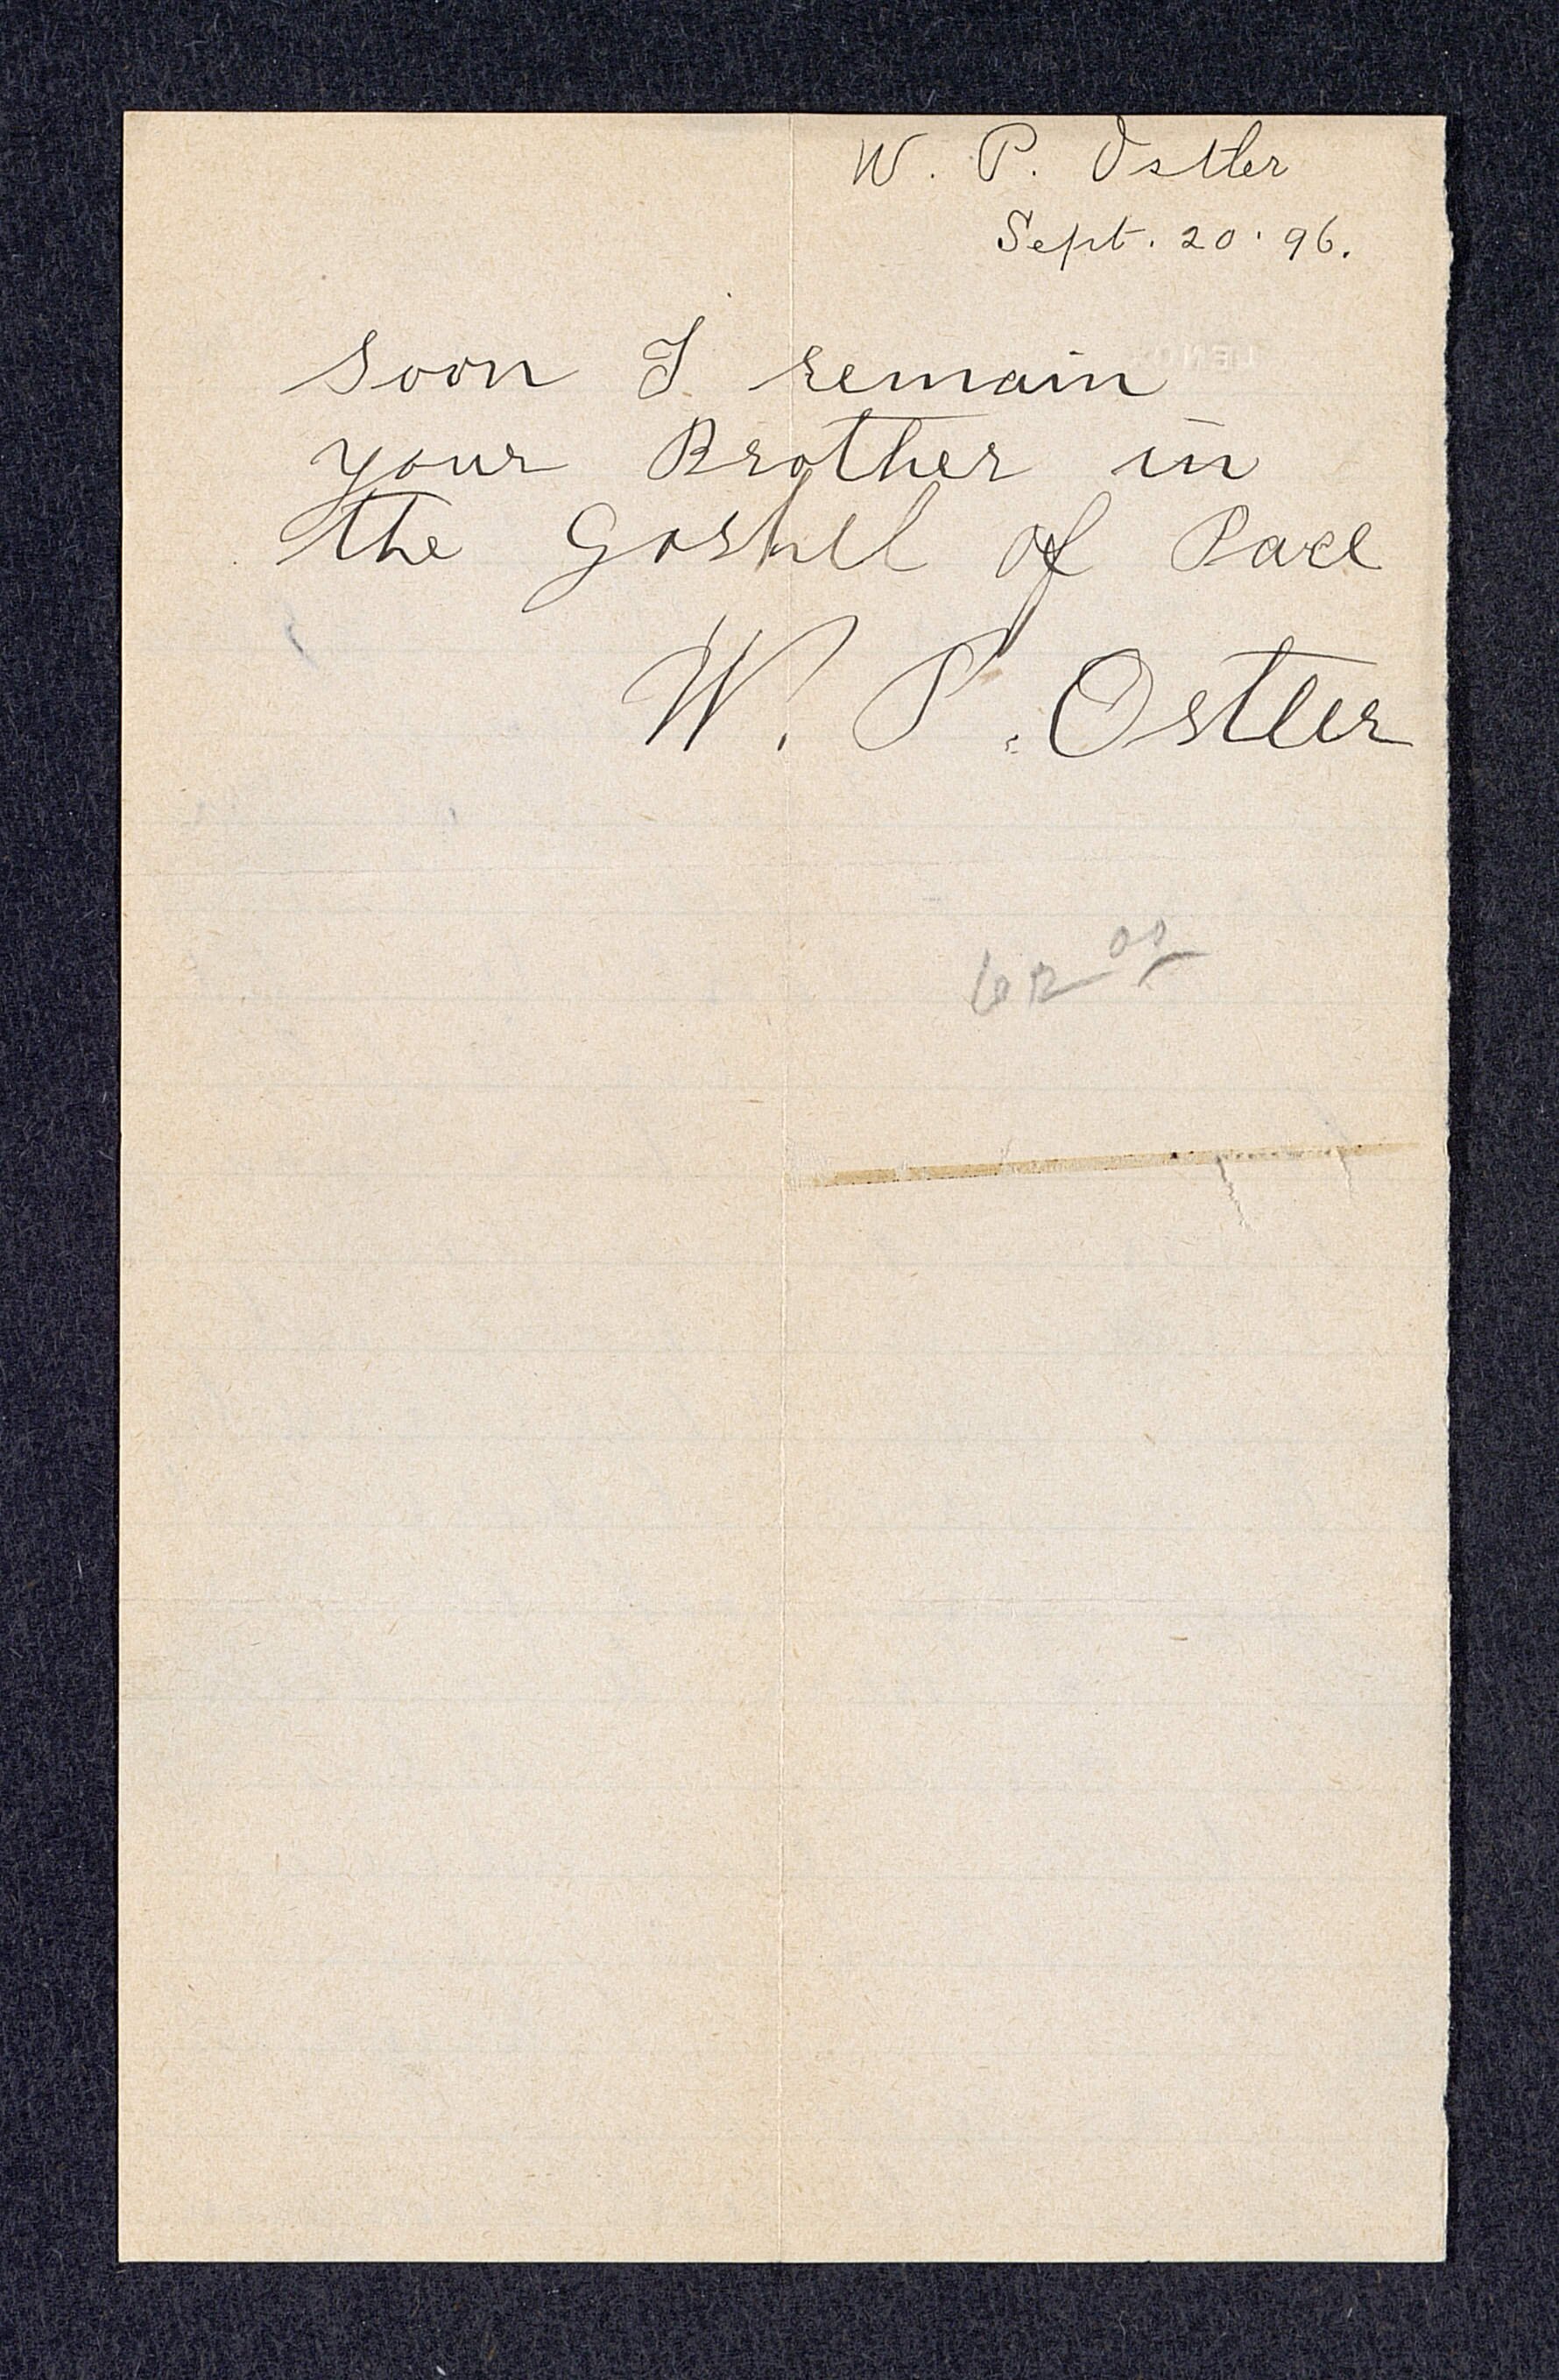 W. P. Ostler
Sept. 20. 96.
soon I remain
your Brother in
the Gospel of Pace
W. P. Ostler